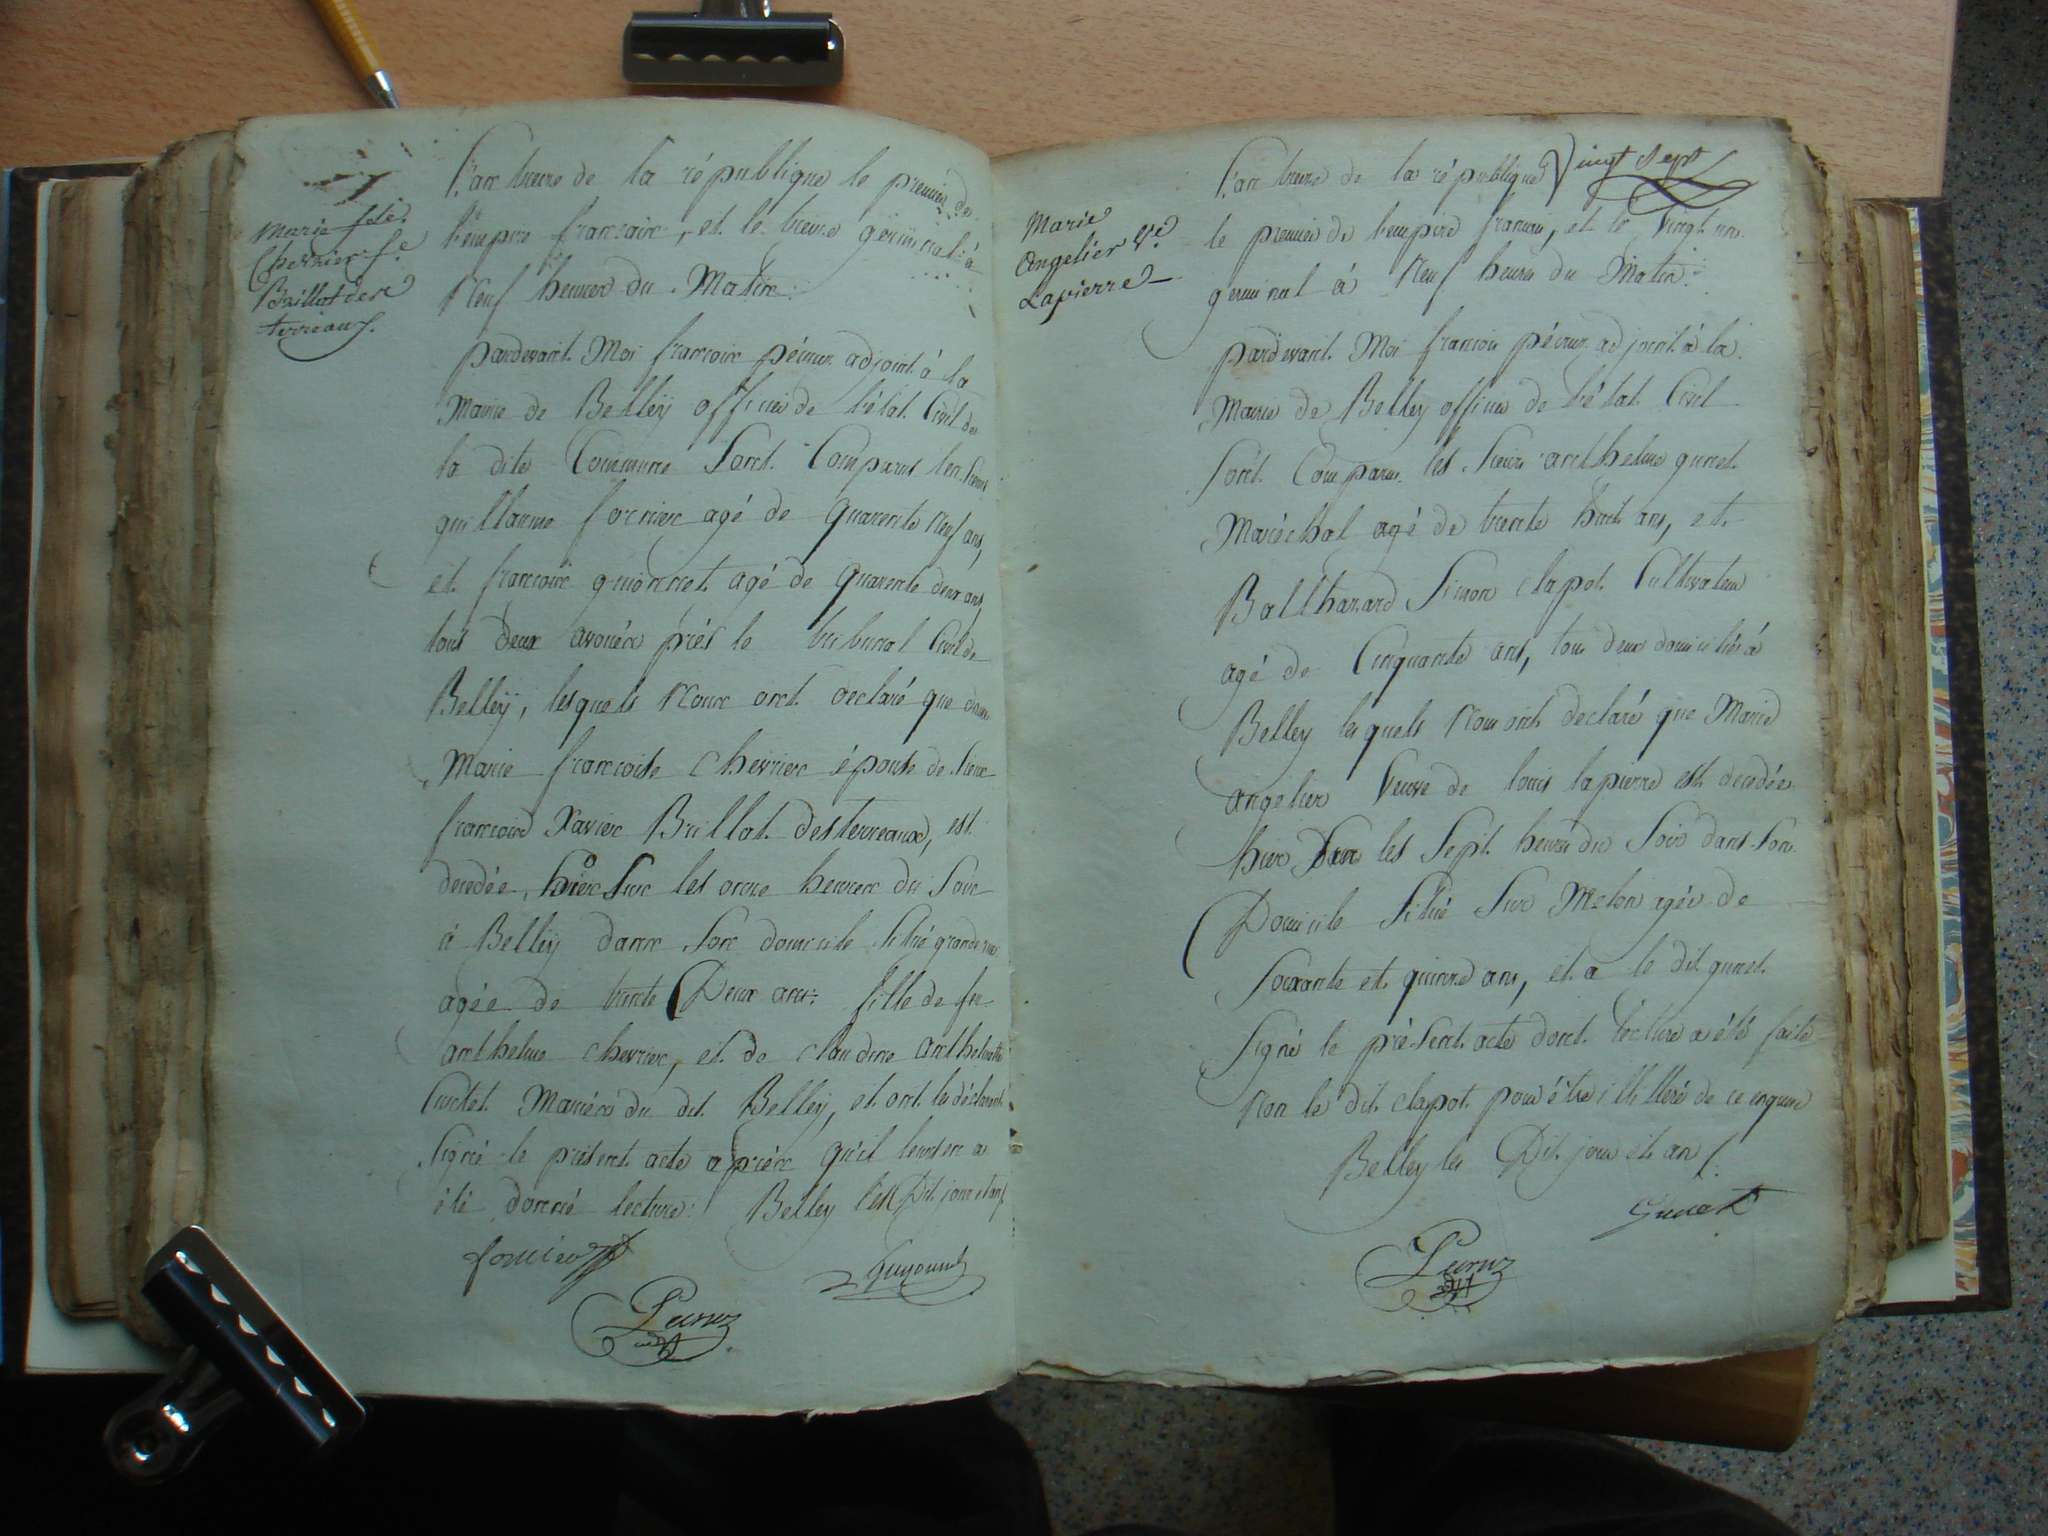 Marie f.se
Chevrier f.e
Brillat des
terreaux.
L'an treize de la république le premier de
l'empire français, et le treize germinal à
Neuf heures du Matin.
pardevant Moi françois pécruz adjoint à la
Mairie de Belley officier de l'état Civil de
la dite Commune Sont Comparus les sieurs
guillaume fornier agé de quarente Neuf ans,
et françois guionnet agé de quarente deux ans
tous deux avoués près le tribunal Civil de
Belley, lesquels Nous ont declaré que dame
Marie françoise Chevrier épouse de sieur
françois Xavier Brillat desterreaux, est
decedée, hier Sur les onze heures du Soir
à Belley dans Son domicile Situé grande rue
agée de trente Deux ans. fille de feu
anthelme chevrier, et de claudine anthelmette
mariés du dit Belley, et ont les déclarants
Signé le présent acte après qu'il leur en a
été donné lecture. Belley les Dit jour et an
fornier
Guyonnet
Pecruz
adjt
Vingt Sept
Marie
Angelier V.e
Lapierre
L'an treize de la république
le premier de l'empire français, et le Vingt un
germinal à Neuf heures du Matin.
pardevant Moi françois pécruz adjoint à la
Mairie de Belley officier de l'état Civil
Sont Comparus les Sieurs anthelme gunet
Maréchal agé de trente huit ans, et
Balthazard Simon clapot Cultivateur
agé de Cinquante ans, tous deux domiciliés à
Belley lesquels Nous ont declaré que Marie
angelier Veuve de louis lapierre est decedée
hier les Sept heures du Soir dans Son
Domicile Situé Sur Melon agée de
Soixante et quinze ans, et a le dit gunet
Signé le présent acte dont lecture a été faite
Non le dit clapot pour être illitéré de ce enquis
Belley les Dit jour et an
Gunet
Pecruz
adjt